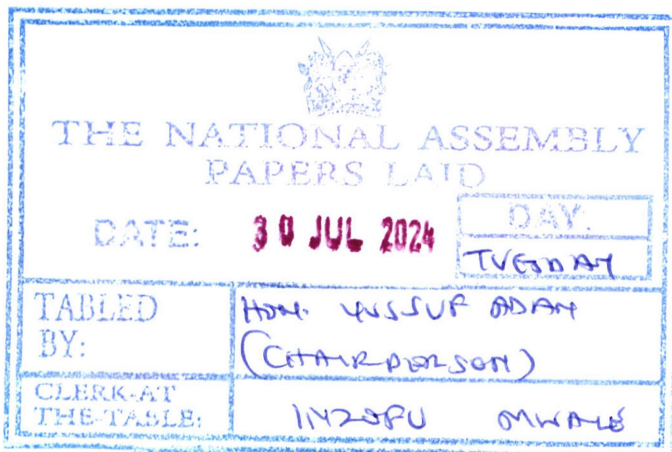 THE NATIONAL ASSEMBLY
PAPERS LAID
DATE: 30 JUL 2024
DAY:
TUESDAY
TABLED BY:
HON. YUSSUF ADAN
(CHAIRPERSON)
CLERK-AT THE-TABLE:
INZOFU MWALE